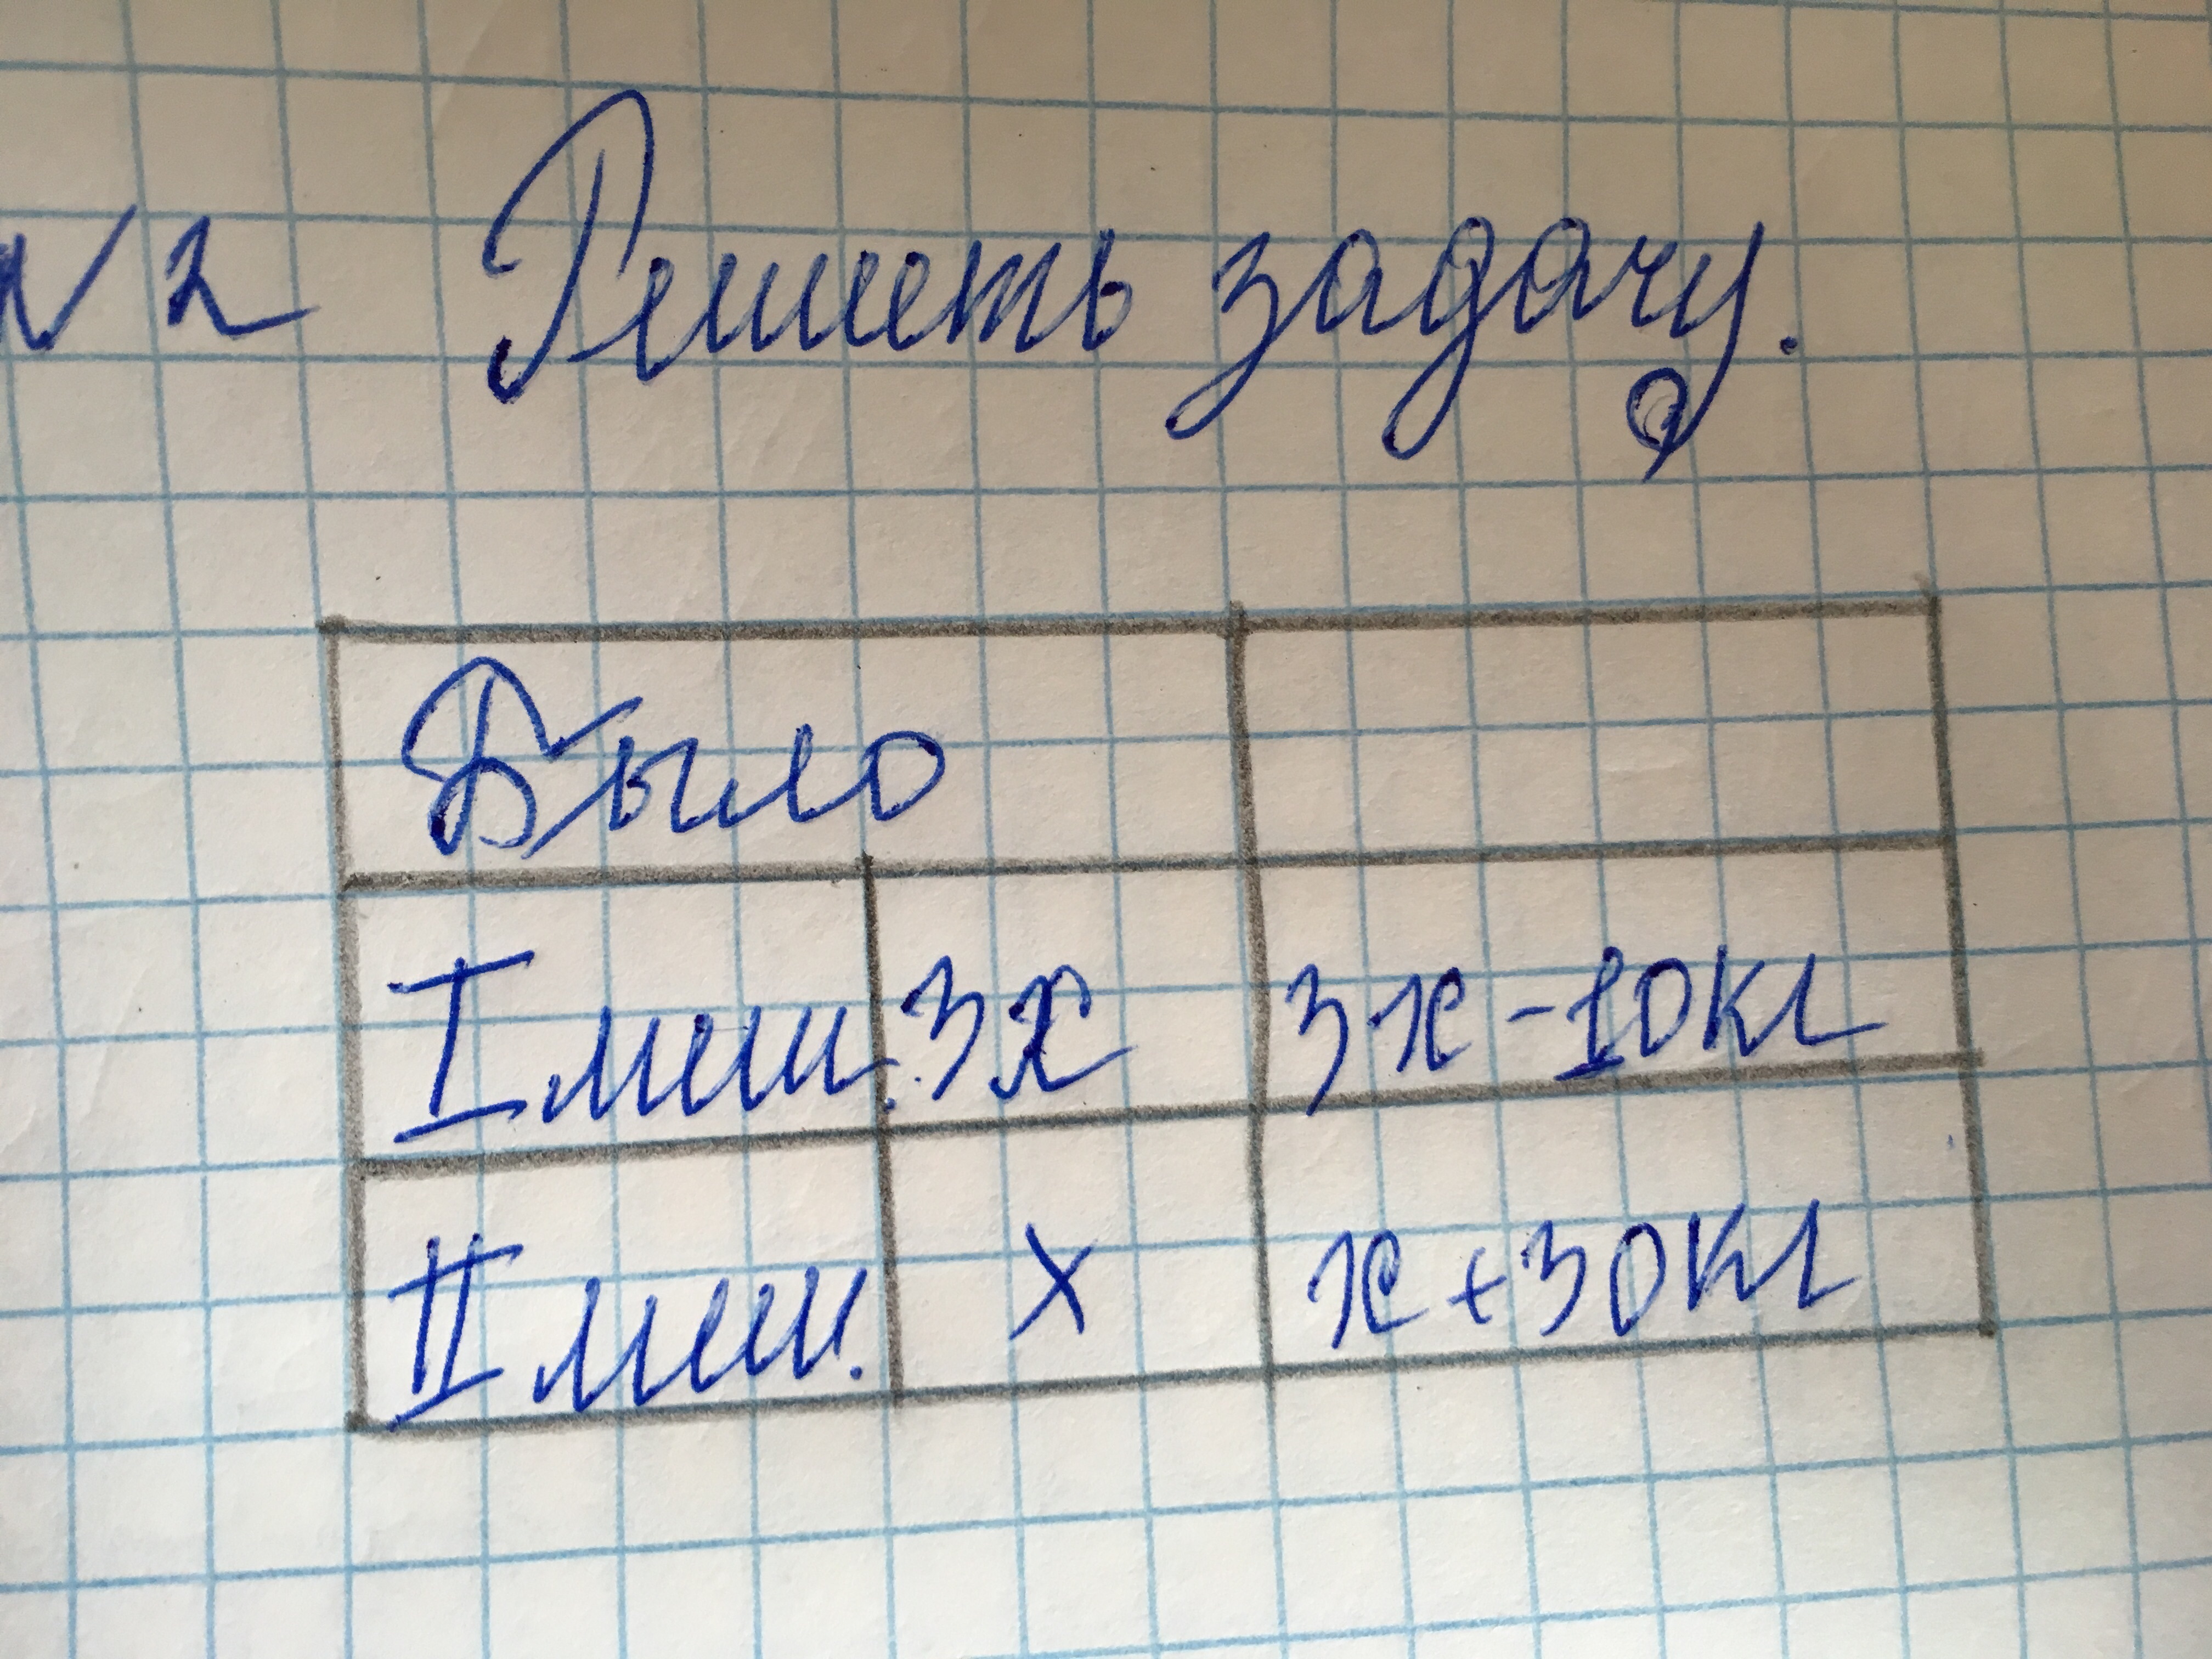 № 2 Решить задачу.
Было
I меш. 3х 3х - 10кг
II меш. х х + 30кг